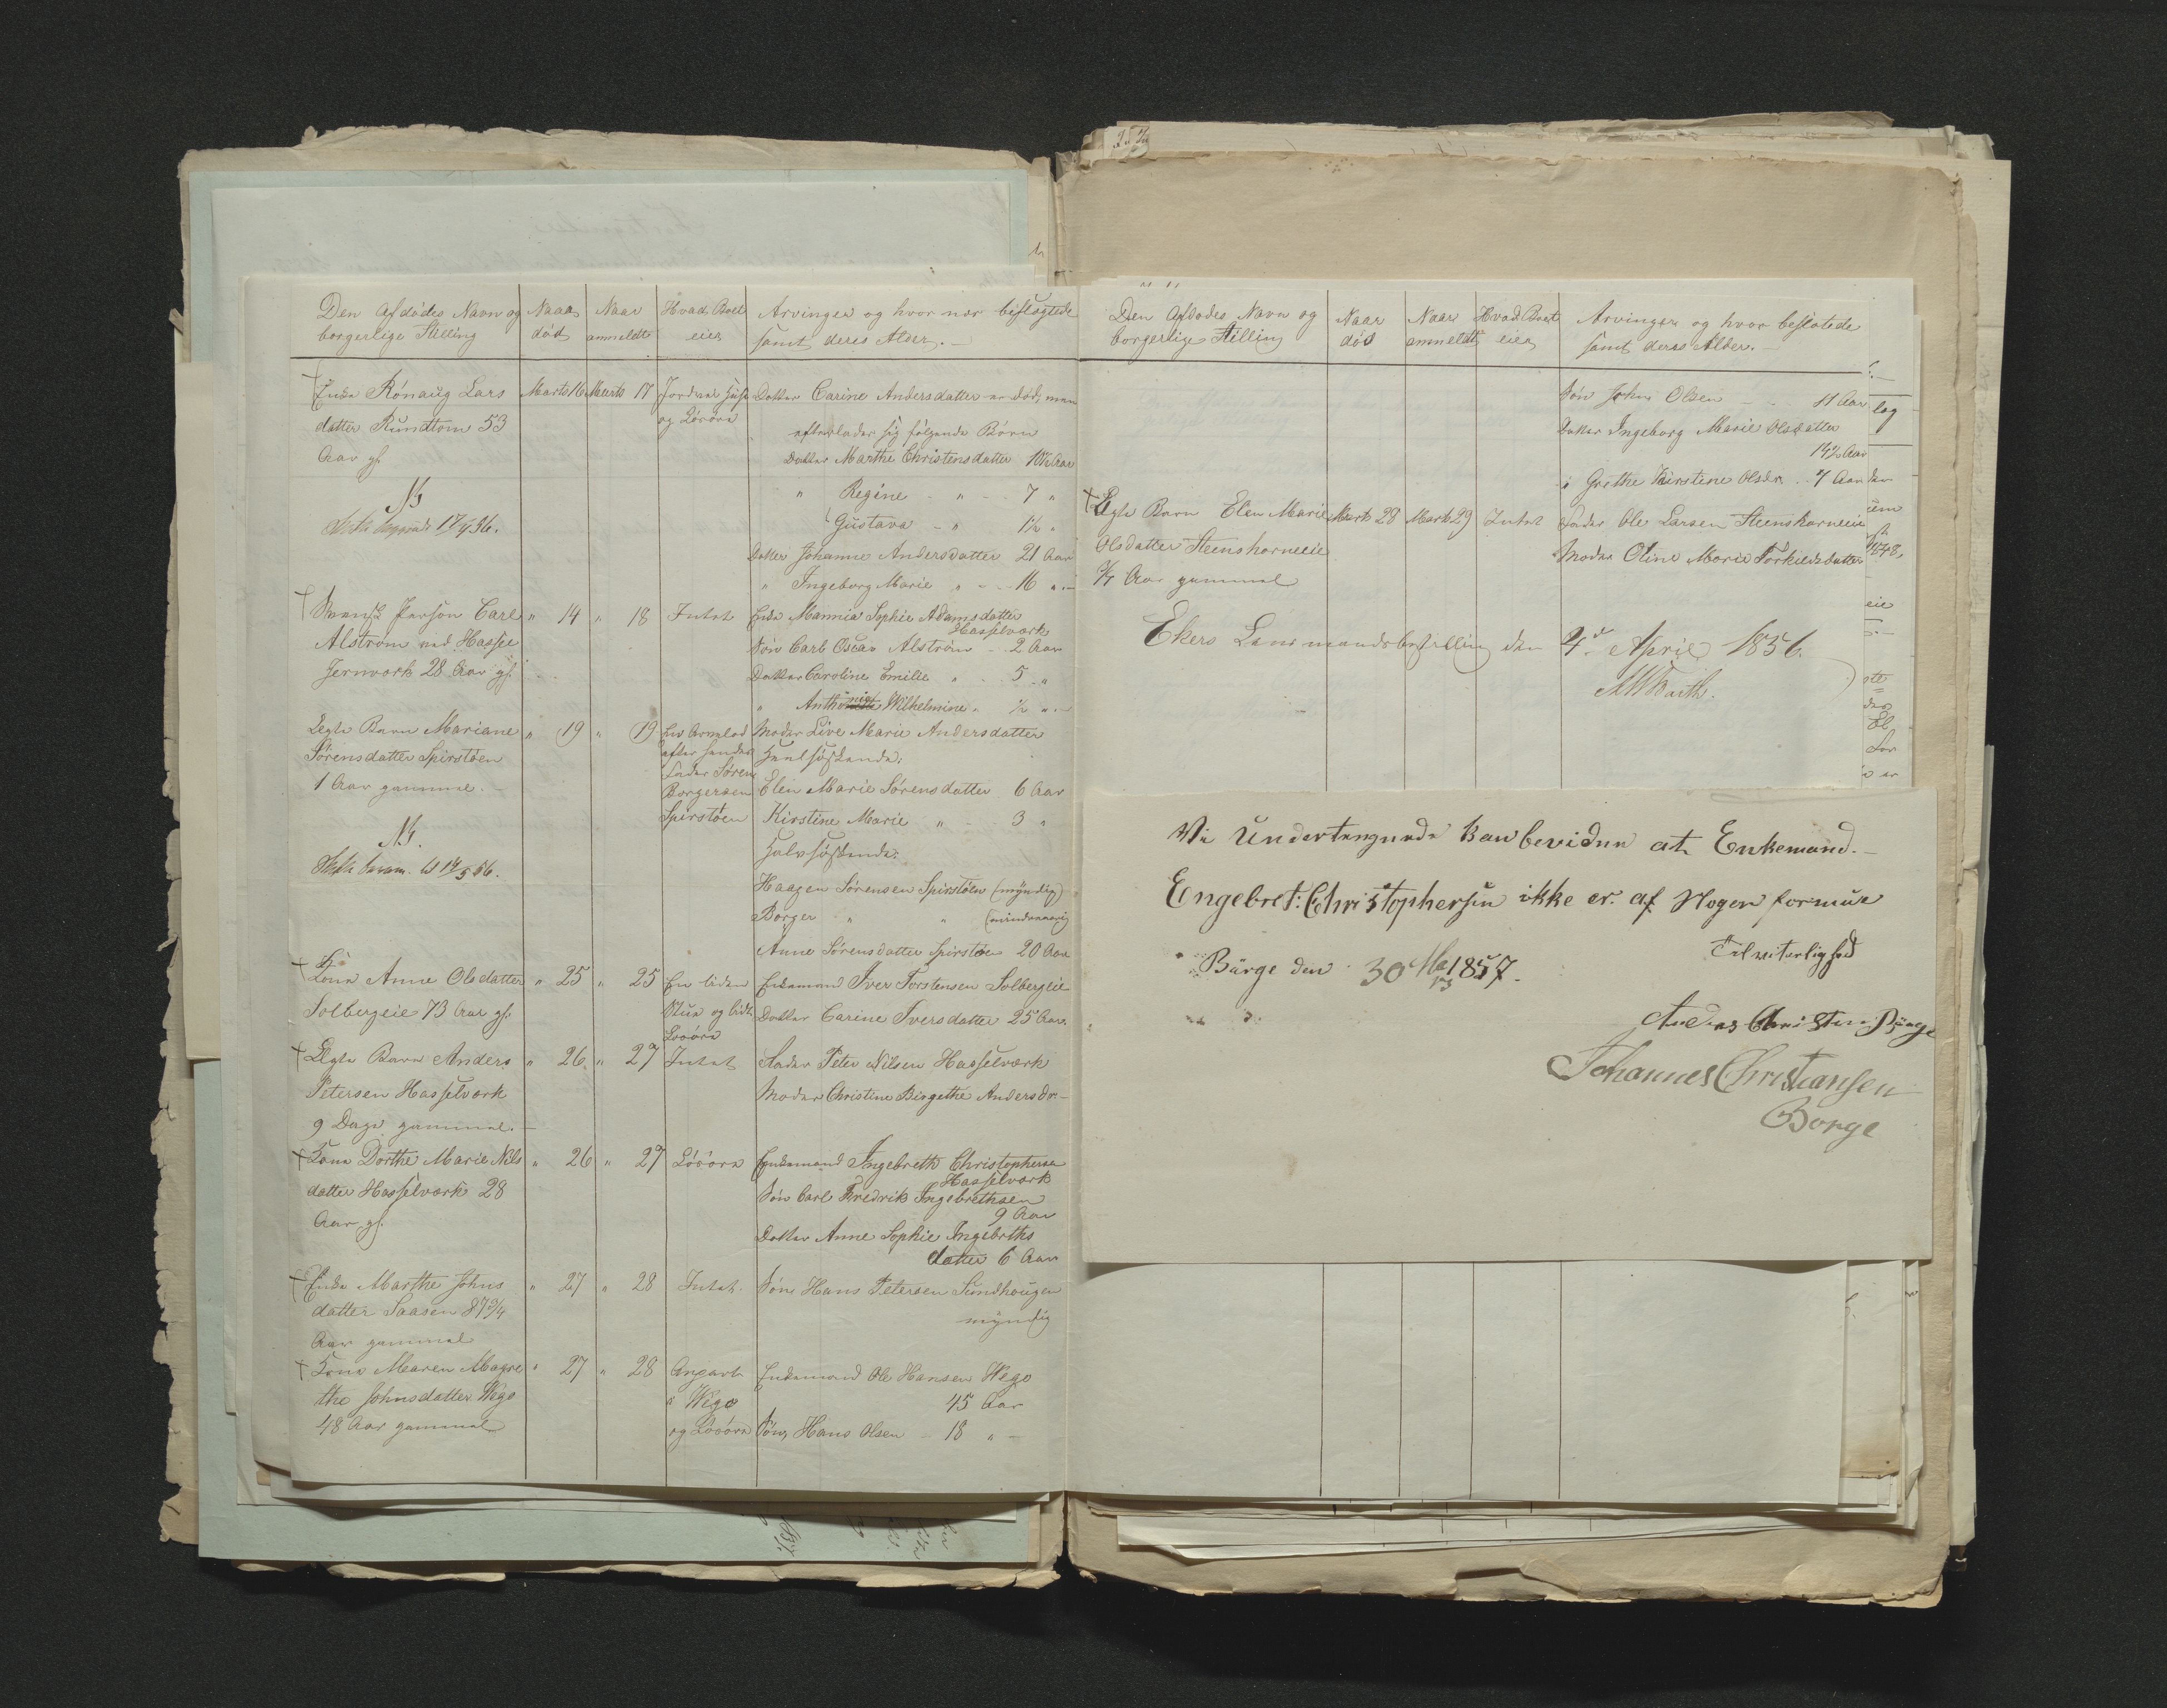 Den Afdødes Navn og borgerlige Stilling
Naar død
Naar anmeldt
Hvad Boet eier
Arvinger og hvor nær beslægtede samt deres Alder.
Enke Rønaug Lars
datter Rundtom 53
Aar gl.
Marts 16
Marts 17
Jordvei Huse
og Løsøre
Datter Carine Andersdatter er død, men
efterlader sig følgende Børn
Datter Marthe Christensdatter 10½ Aar
" Regine - " - 7 "
" Gustava - " 1½ "
Datter Johanne Andersdatter 21 Aar
" Ingeborg Marie " - - 16 " -
NB
17/4 56.
Svensk Person Carl
Alstrøm ved Hassel
Jernverk 28 Aar gl.
" 14
" 18
Intet
Enke Mannia Sophie Adamsdatter
Hasselverk
Søn Carl Oscar Alstrøm - 2 Aar
Datter Caroline Emilie " - 5 "
" Anthonie Wilhelmine " ½ " -
Ægte Barn Mariane
Sørensdatter Spirstøen
1 Aar gammel. -
" 19
" 19
En Arvelod
efter hendes
Fader Søren
Borgersen
Spirstøen
Moder Live Marie Andersdatter
Heelsødskende:
Elen Marie Sørensdatter 6 Aar
Kirstine Marie " - 3 "
Halvsødskende:
Haagen Sørensen Spirstøen (myndig)
Borger " " (mindreaarig
Anne Sørensdatter Spirstøe 20 Aar
NB.
14/5 56.
Kone Anne Olsdatter
Solbergeie 73 Aar gl.
" 25
" 25
En liden
Stue og lidt
Løsøre
Enkemand Iver Torstensen Solbergeie
Datter Carine Iversdatter 25 Aar.
Ægte Barn Anders
Petersen Hasselverk
9 Dage gammel. -
" 26
" 27
Intet
Fader Peter Nilsen Hasselverk
Moder Christine Birgethe Andersdr. -
Kone Dorthe Marie Nils
datter Hasselverk 28
Aar gl.
" 26
" 27
Løsøre
Enkemand Ingebreth Christophersen
Hasselverk
Søn Carl Fredrik Ingebrethsen
9 Aar
Datter Anne Sophie Ingebreths
datter 6 Aar
Enke Marthe Johns
datter Saasen 87¾
Aar gammel
" 27
" 28
Intet.
Søn Hans Petersen Sundhougen
myndig
Kone Maren Magre
the Johnsdatter Wego
48 Aar gammel
" 27
" 28
Anpart
i Wego
og Løsøre
Enkemand Ole Hansen Wego
45 Aar
Søn Hans Olsen - 18 " -
Den Afdødes Navn og borgerlige Stilling
Naar død
Naar anmeldt
Hvad Boet eier
Arvinger og hvor beslægtede samt deres Alder. -
Søn John Olsen - - 11 Aar
Datter Ingeborg Marie Olsdatter
14½ Aar
" Grethe Kirstine Olsdr. . 7 Aar
Ægte Barn Elen Marie
Olsdatter Steenskorneeie
¾ Aar gammel
Marts 28
Marts 29
Intet
Fader Ole Larsen Steenskorneeie
Moder Oline Marie Torkildsdatter
Ekers Lensmandsbestilling den 4de April 1856.
Vi Undertengnede kan bevidne at Enkemand. -
Engebret: Christophersen ikke er. af Nogen formue
Tilviterlighed
Bürge den 30 1857.
Christen Bürge
Johannes Christiansen
Borge